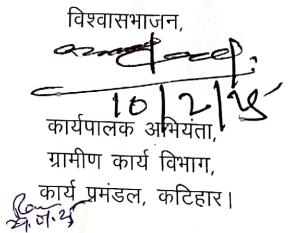 विश्वासभाजन,
10/2/25
कार्यपालक अभियंता,
ग्रामीण कार्य विभाग,
कार्य प्रमंडल, कटिहार।